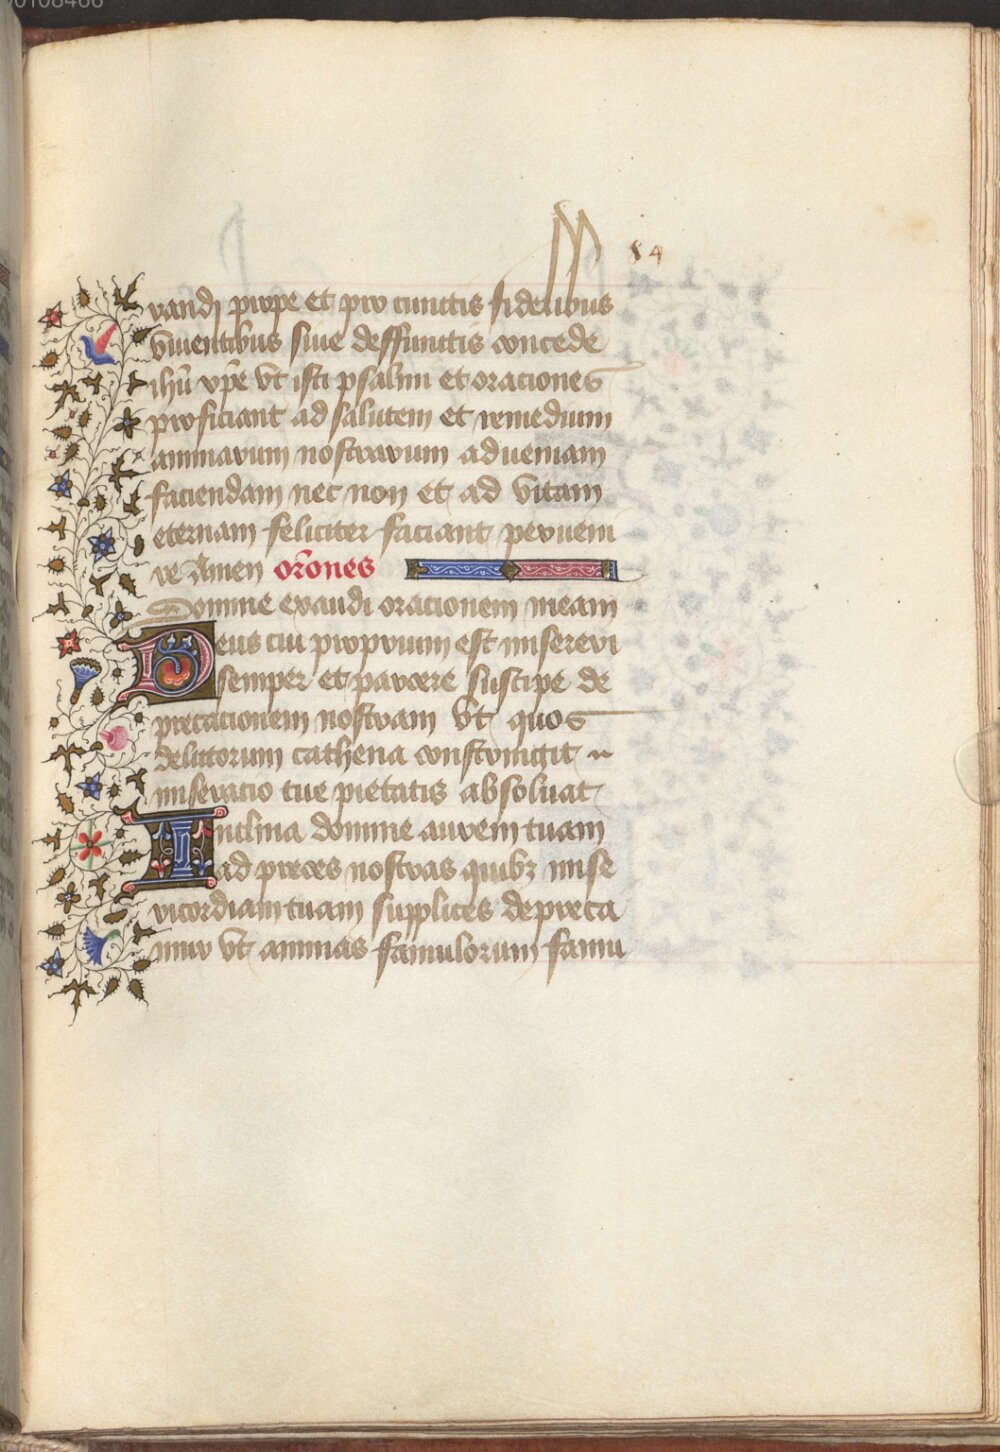 00108466
84
randi prope et pro cunctis fidelibus
viuentibus siue deffunctis concede
ihũ xp̃e vt isti psalmi et orationes
proficiant ad salutem et remedium
animarum nostrarum ad veniam
faciendam nec non et ad vitam
eternam feliciter faciant peruem
re Amen or̃ones
Domine exaudi orationem meam
Deus cui proprium est misereri
semper et parcere suscipe de
precationem nostram vt quos
delictorum cathena constringit
miseratio tue pietatis absoluat
Inclina domine aurem tuam
ad preces nostras quibꝫ mise
ricordiam tuam supplices depreca
mur vt animas famulorum famu